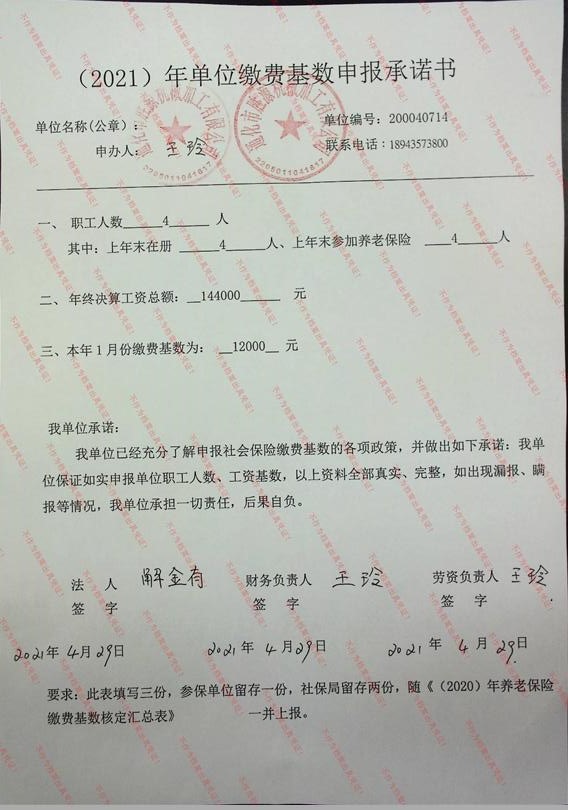 （2021）年单位缴费基数申报承诺书
单位名称(公章)： 单位编号：200040714
申办人： 王玲 联系电话：18943573800
一、 职工人数____4____ 人
其中：上年末在册 ____4____人、上年末参加养老保险 ____4____人
二、 年终决算工资总额：__144000______ 元
三、本年 1 月份缴费基数为： __12000__ 元
我单位承诺：
我单位已经充分了解申报社会保险缴费基数的各项政策，并做出如下承诺：我单
位保证如实申报单位职工人数、工资基数，以上资料全部真实、完整，如出现漏报、瞒
报等情况，我单位承担一切责任，后果自负。
法 人 解金有 财务负责人 王玲 劳资负责人 王玲
签 字 签 字 签 字
2021年 4月29日 2021年 4月29日 2021年 4月29日
要求：此表填写三份，参保单位留存一份，社保局留存两份，随《（2020）年养老保险
缴费基数核定汇总表》 一并上报。